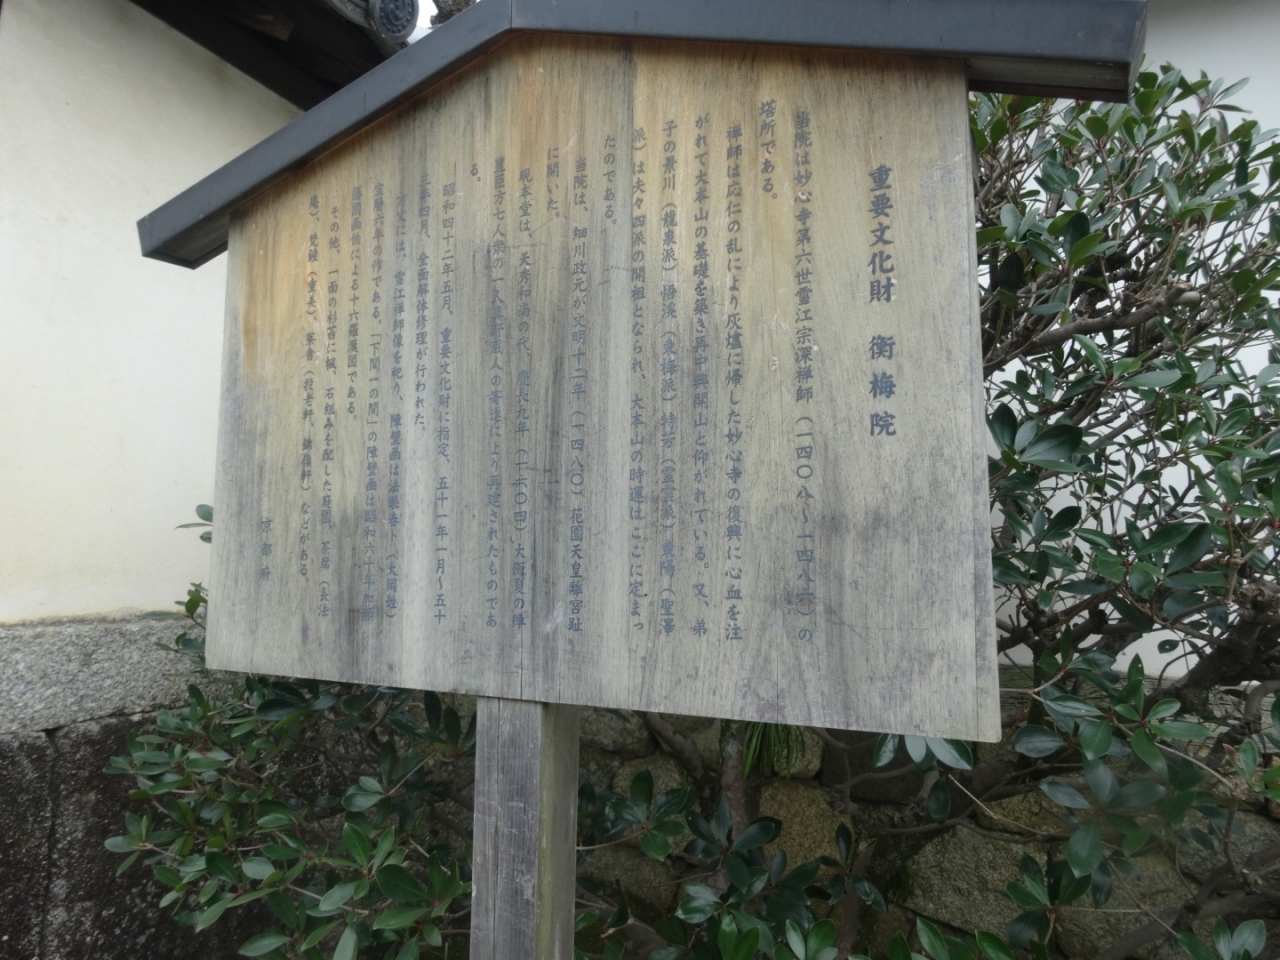 重要文化財　衡梅院
当院は妙心寺第六世雪江宗深禅師（一四〇八〜一四八六）の
塔所である。
禅師は応仁の乱により灰燼に帰した妙心寺の復興に心血を注
がれて大本山の基礎を築き再中興開山と仰がれている。又、弟
子の景川（龍泉派）悟渓（東海派）特芳（霊雲派）東陽（聖澤
派）は夫々四派の開祖となられ、大本山の時運はここに定まっ
たのである。
当院は、細川政元が文明十二年（一四八〇）花園天皇離宮趾
に開いた。
現本堂は、天秀和尚の代、慶長九年（一六〇四）大阪夏の陣
豊臣方七人衆の一人真野蔵人の寄進により再建されたものであ
る。
昭和四十二年五月、重要文化財に指定、五十一年一月〜五十
三年四月、全面解体修理が行われた。
方丈には、雪江禅師像を祀り、障壁画は法眼春卜（大岡姓）
宝暦六年の作である。「下間一の間」の障壁画は昭和六十年
画伯による十六羅漢図である。
その他、一面の杉苔に楓、石組みを配した庭園、茶席（長法
庵）、梵鐘（重美）、寮舎（投老軒、）などがある。
京都府